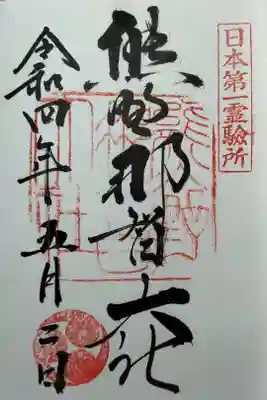 日本第一霊験所
熊野那智大社
令和四年五月二日